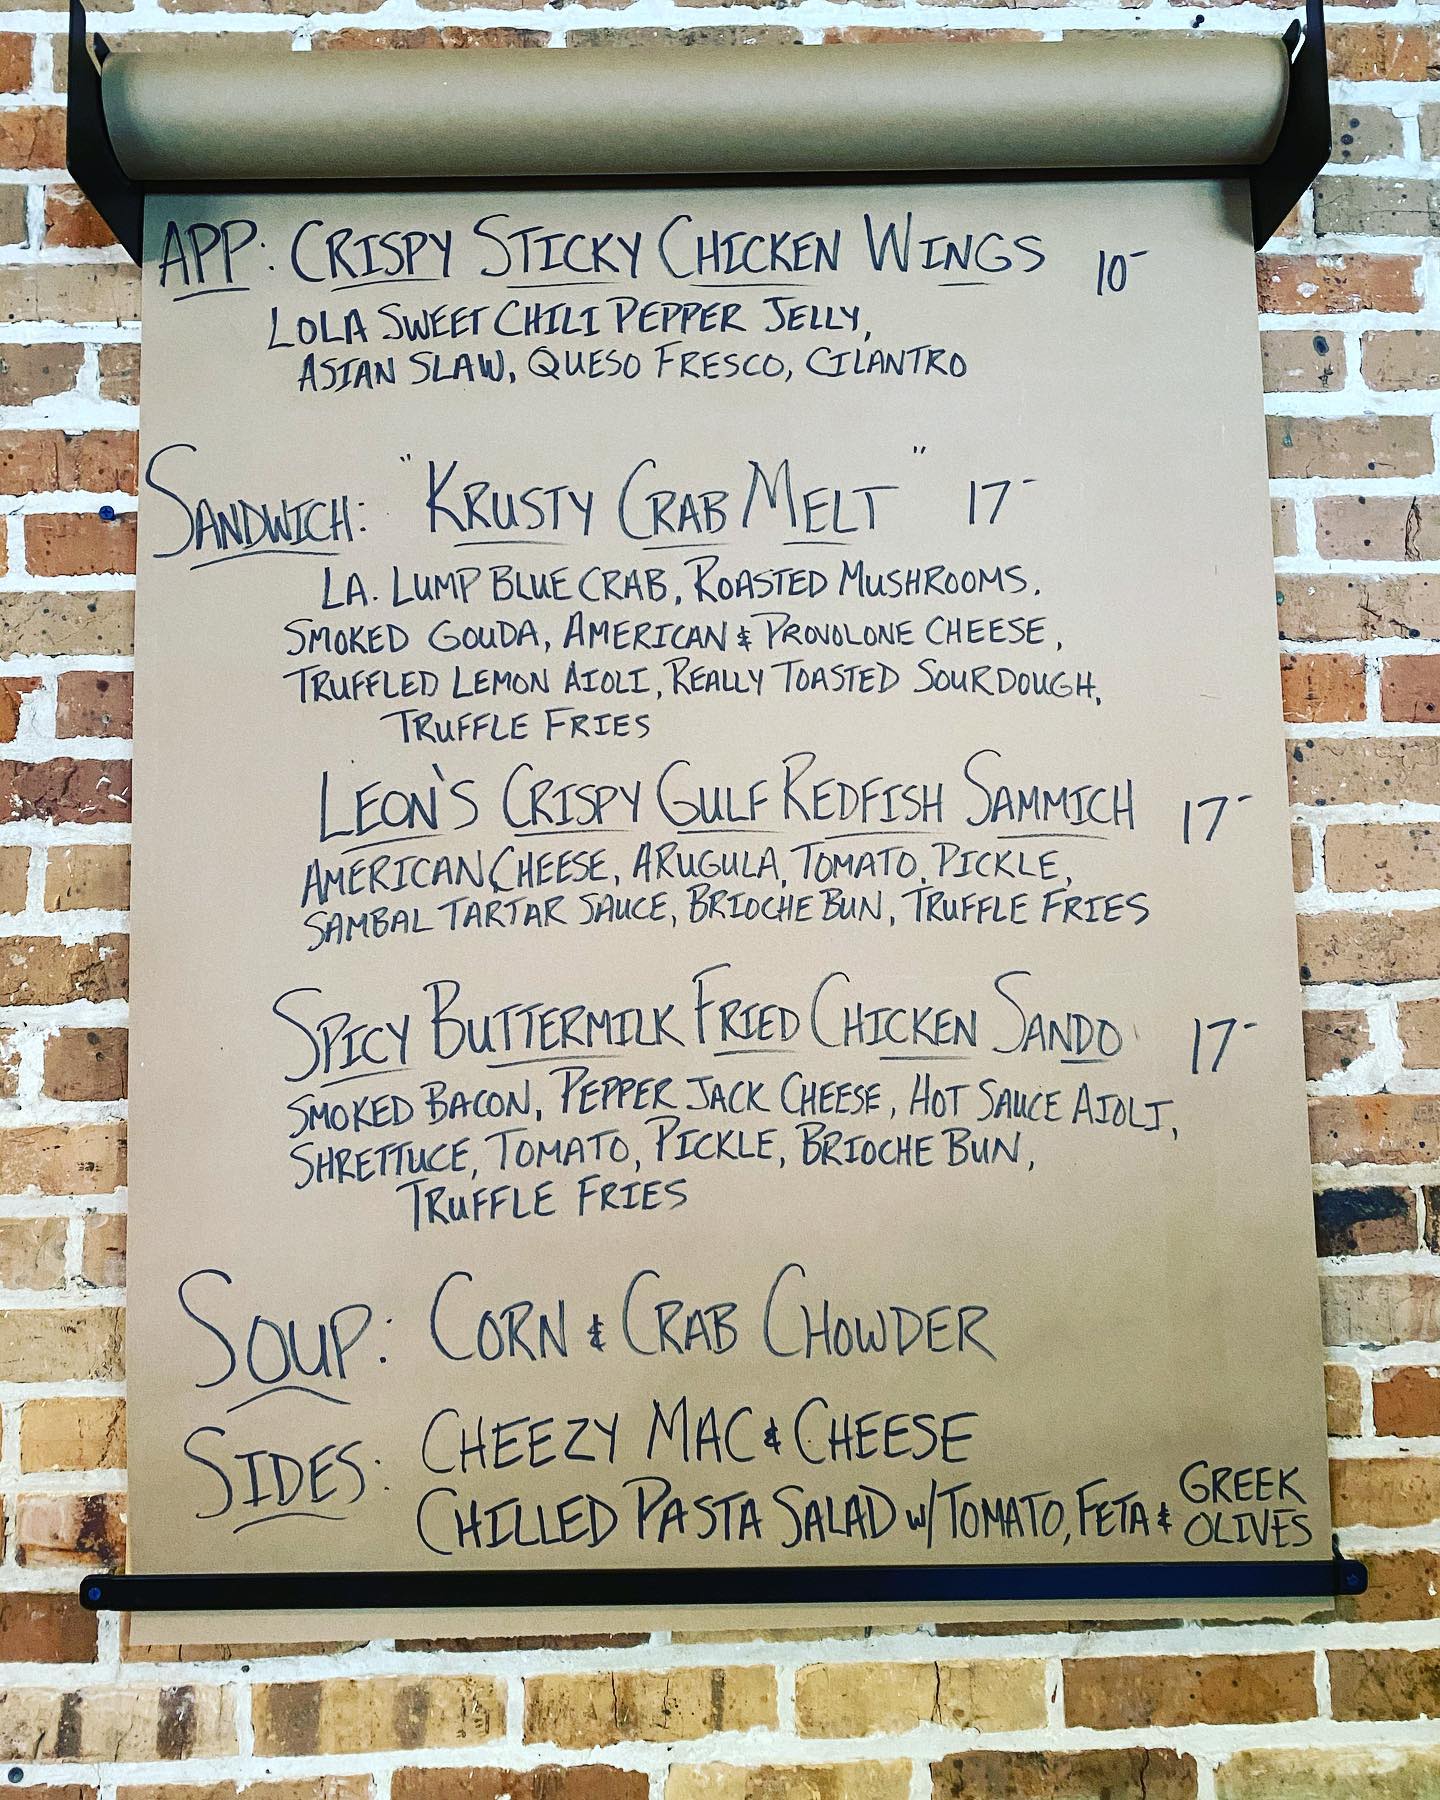 APP: CRISPY STICKY CHICKEN WINGS 10-
LOLA SWEET CHILI PEPPER JELLY,
ASIAN SLAW, QUESO FRESCO, CILANTRO
SANDWICH: "KRUSTY CRAB MELT" 17-
LA. LUMP BLUE CRAB, ROASTED MUSHROOMS,
SMOKED GOUDA, AMERICAN & PROVOLONE CHEESE,
TRUFFLED LEMON AIOLI, REALLY TOASTED SOURDOUGH,
TRUFFLE FRIES
LEON'S CRISPY GULF REDFISH SAMMICH 17-
AMERICAN CHEESE, ARUGULA, TOMATO, PICKLE,
SAMBAL TARTAR SAUCE, BRIOCHE BUN, TRUFFLE FRIES
SPICY BUTTERMILK FRIED CHICKEN SANDO 17-
SMOKED BACON, PEPPER JACK CHEESE, HOT SAUCE AIOLI,
SHRETTUCE, TOMATO, PICKLE, BRIOCHE BUN,
TRUFFLE FRIES
SOUP: CORN & CRAB CHOWDER
SIDES: CHEEZY MAC & CHEESE
CHILLED PASTA SALAD w/ TOMATO, FETA & GREEK
OLIVES